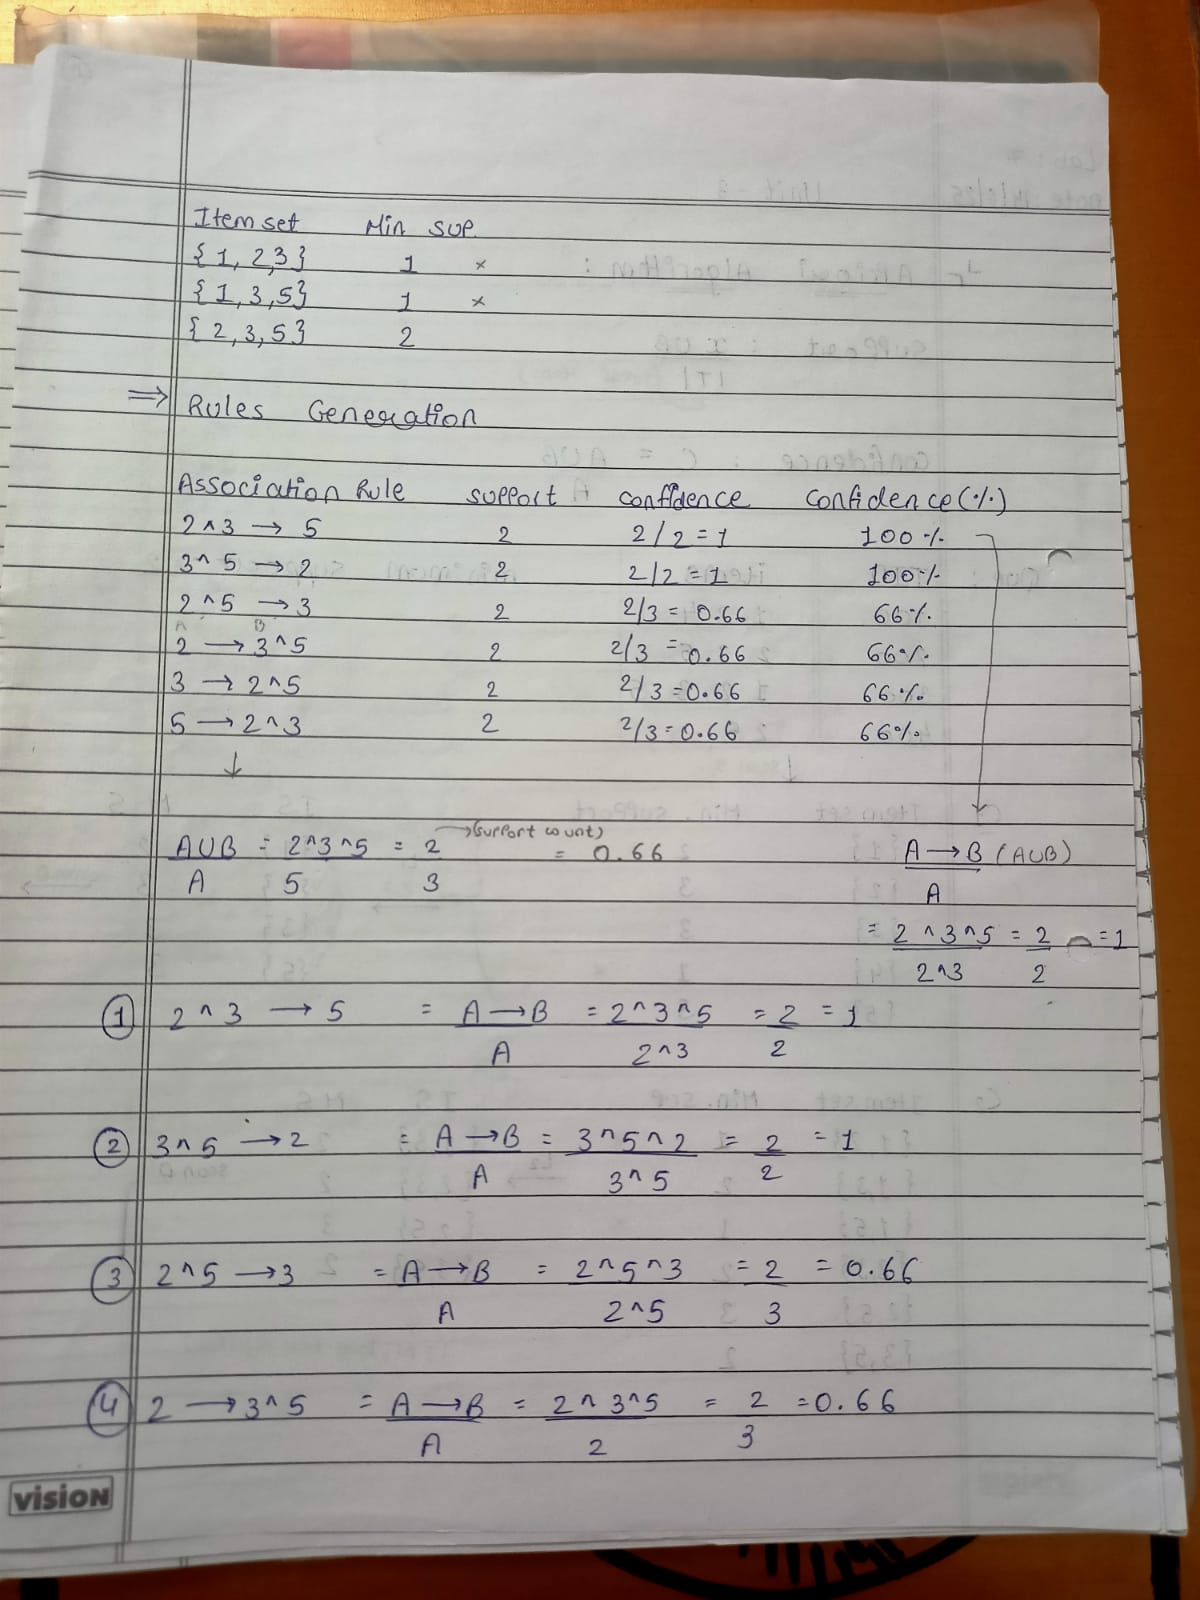 Item set Min sup.
{1, 2,3} 1 ×
{1, 3, 5} 1 ×
{2, 3, 5} 2
⇒ Rules Generation
Association Rule support confidence Confidence(%)
2^3 → 5 2 2/2 = 1 100%
3^5 → 2 2 2/2 = 1 100%
2^5 → 3 2 2/3 = 0.66 66%
A B
2 → 3^5 2 2/3 = 0.66 66%
3 → 2^5 2 2/3 = 0.66 66%
5 → 2^3 2 2/3 = 0.66 66%
↓
→(support count)
AUB = 2^3^5 = 2 = 0.66
A 5 3
A → B (AUB)
A
= 2^3^5 = 2 = 1
2^3 2
① 2^3 → 5 = A → B = 2^3^5 = 2 = 1
A 2^3 2
② 3^5 → 2 = A → B = 3^5^2 = 2 = 1
A 3^5 2
③ 2^5 → 3 = A → B = 2^5^3 = 2 = 0.66
A 2^5 3
④ 2 → 3^5 = A → B = 2^3^5 = 2 = 0.66
A 2 3
vision